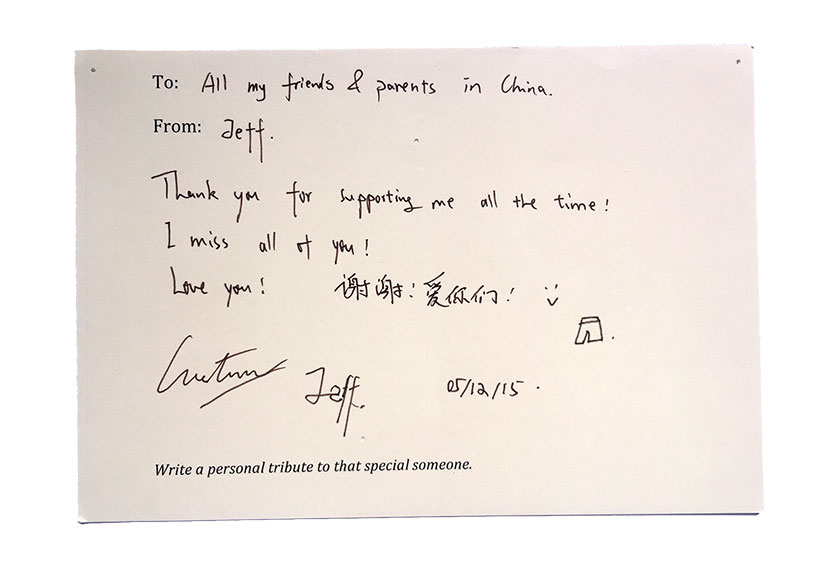 To: All my friends & parents in China.
From: Jeff.
Thank you for supporting me all the time!
I miss all of you!
Love you! 谢谢! 爱你们!
Jeff. 05/12/15.
Write a personal tribute to that special someone.